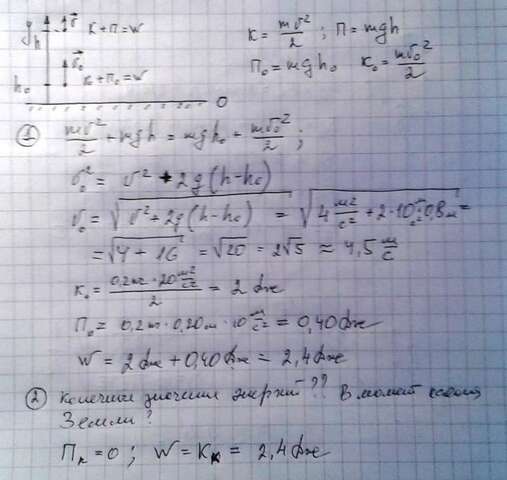 y ↑ v⃗ К + П = W
h
h₀ v⃗₀ К + П₀ = W
O
К = mv²/2 ; П = mgh
П₀ = mgh₀ К₀ = mv₀²/2
① mv²/2 + mgh = mgh₀ + mv₀²/2 ;
v₀² = v² + 2g(h-h₀)
v₀ = √(v² + 2g(h-h₀)) = √(4 м²/с² + 2·10 м/с²·0,8 м) =
= √(4 + 16) = √20 = 2√5 ≈ 4,5 м/с
К₀ = (0,2 кг · 20 м²/с²)/2 = 2 Дж
П₀ = 0,2 кг · 0,20 м · 10 м/с² = 0,40 Дж
W = 2 Дж + 0,40 Дж = 2,4 Дж
② Конечные значения энергий?? В момент касания
Земли?
Пₖ = 0 ; W = Кₖ = 2,4 Дж